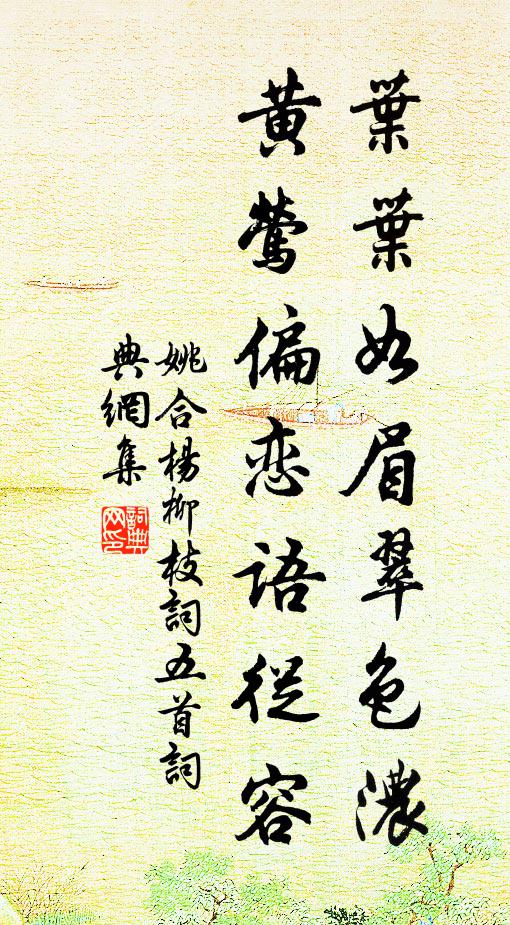 葉葉如眉翠色濃
黄鶯偏恋語從容
姚合楊柳枝詞五首詞
典網集
詞典
网印